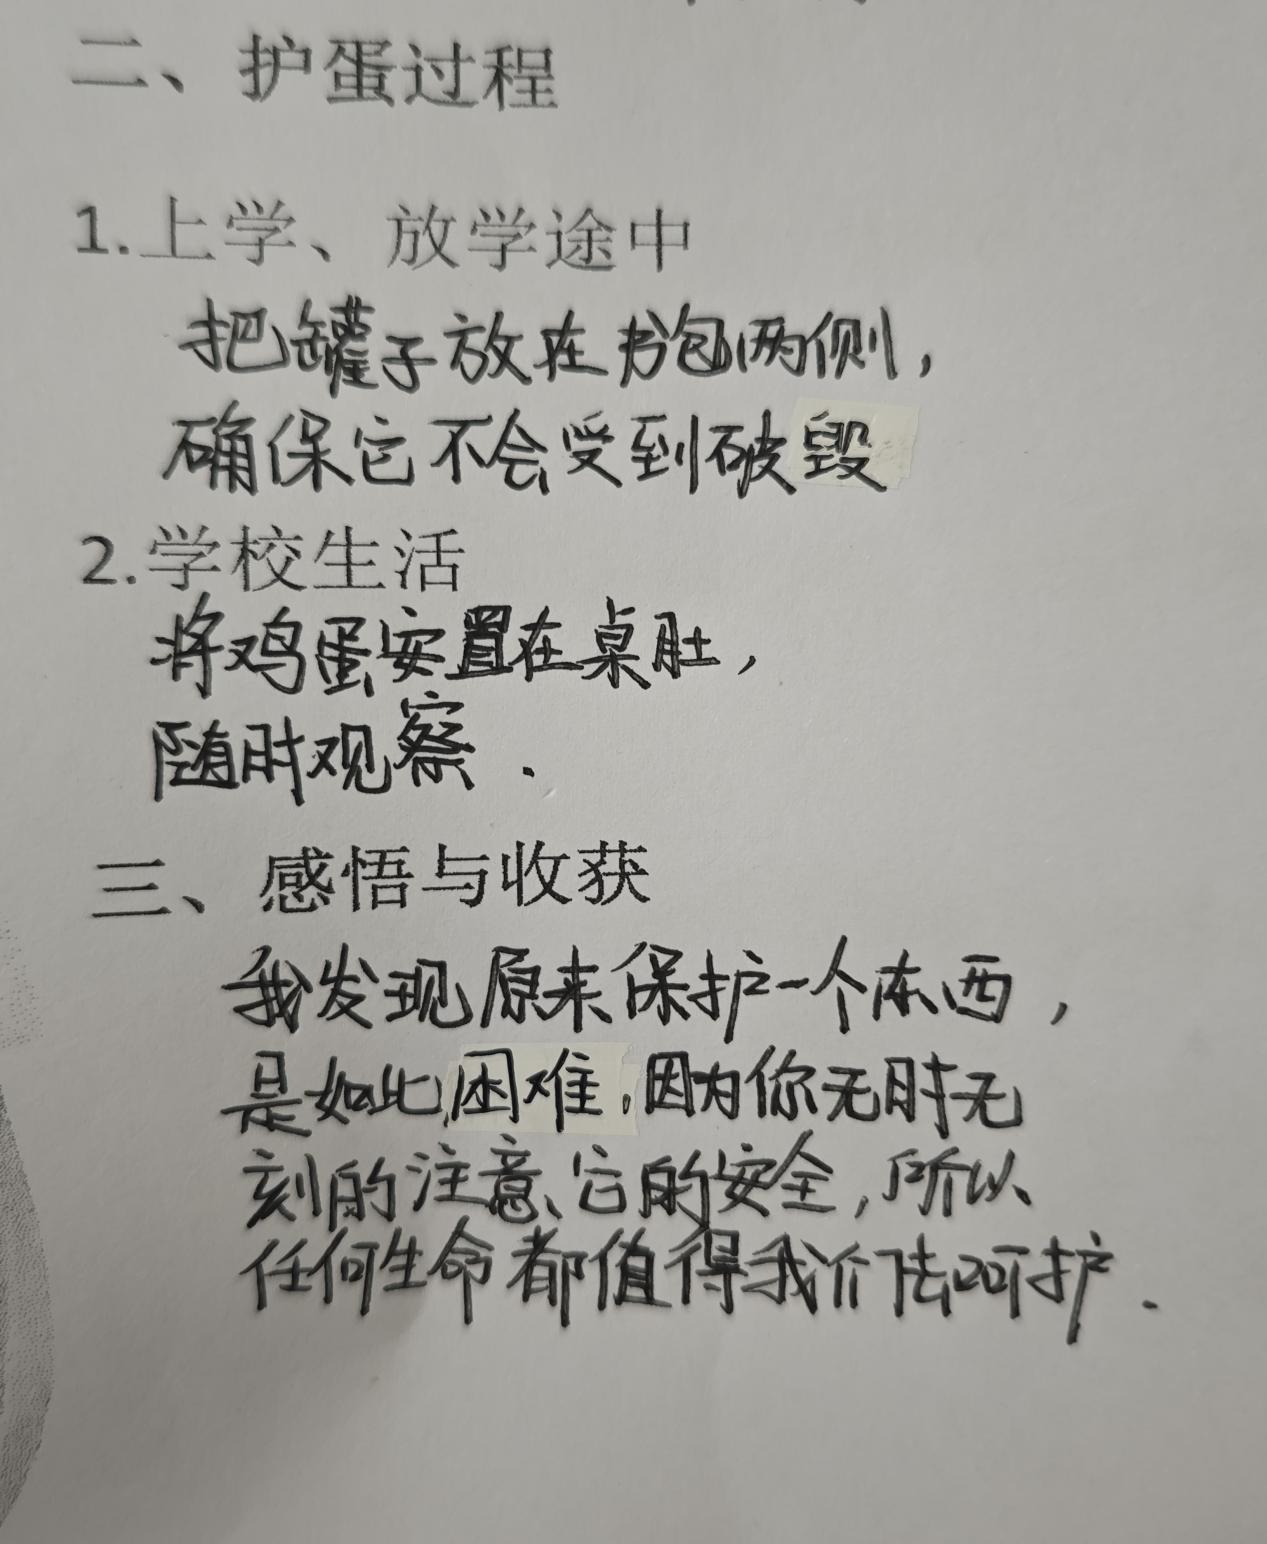 二、护蛋过程
1.上学、放学途中
把罐子放在书包两侧，
确保它不会受到破毁
2.学校生活
将鸡蛋安置在桌肚，
随时观察.
三、感悟与收获
我发现原来保护一个东西，
是如此困难，因为你无时无
刻的注意、它的安全，所以
任何生命都值得我们去呵护.